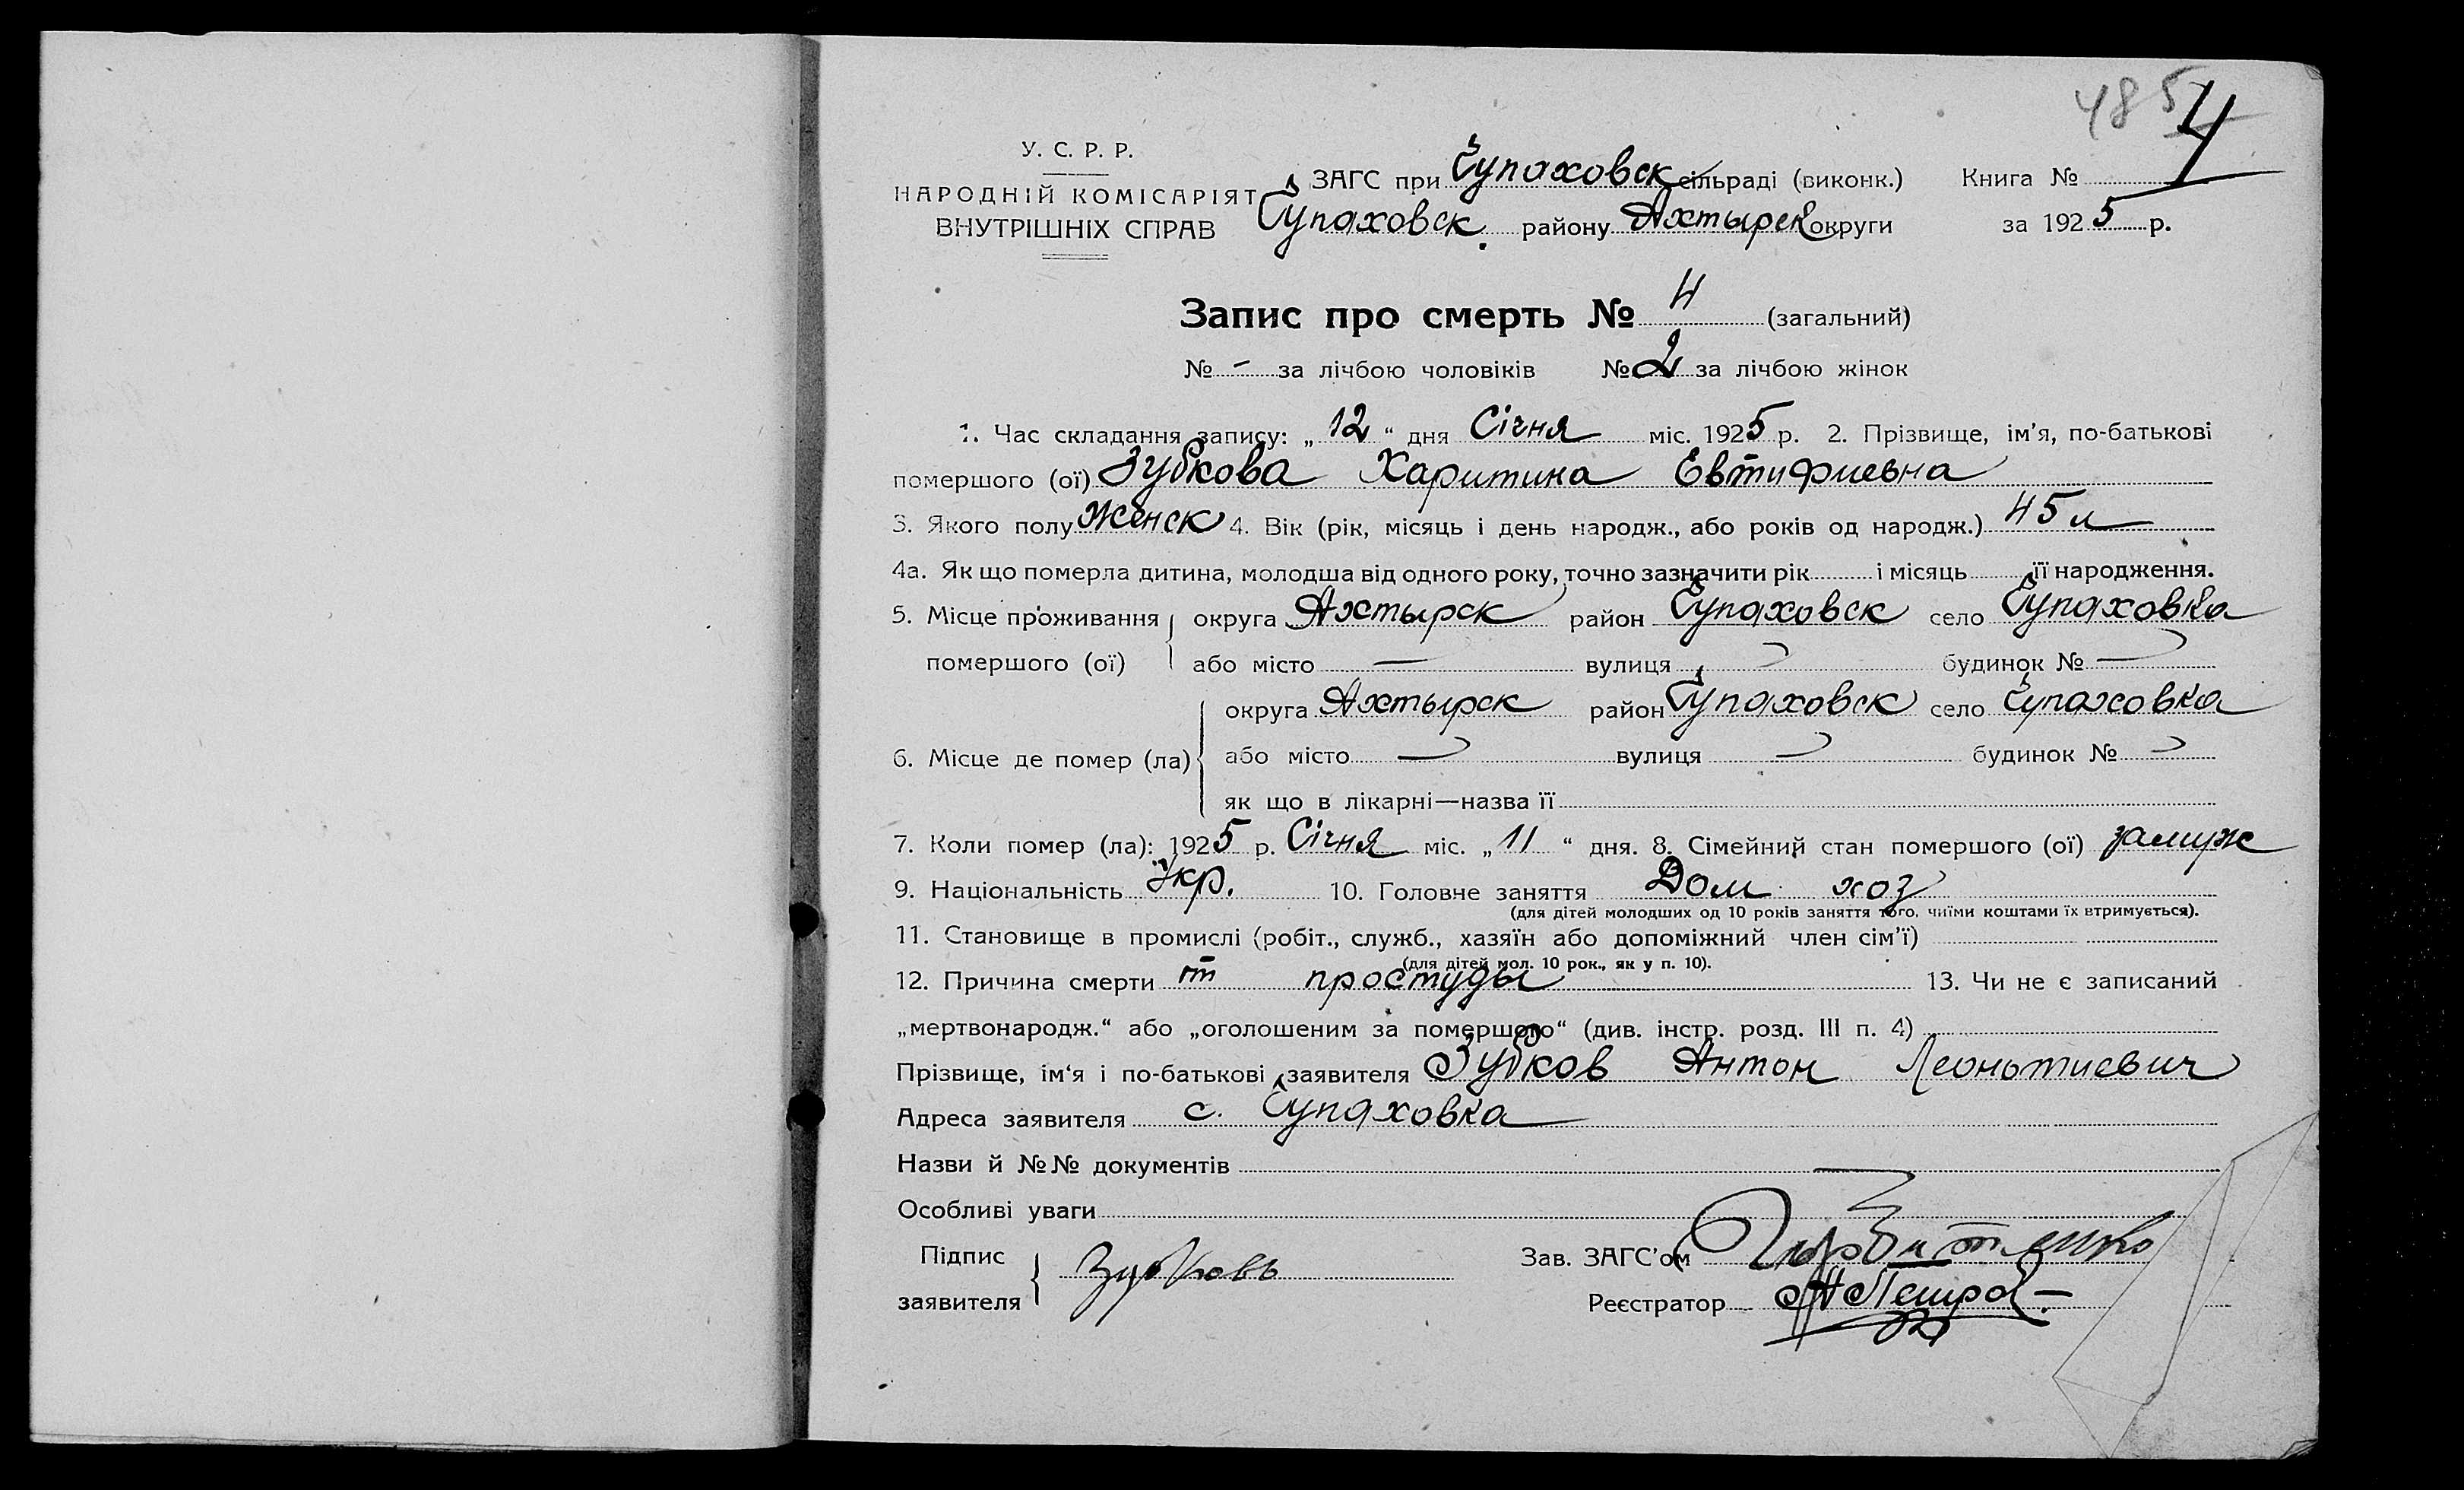 485 4
У. С. Р. Р.
НАРОДНІЙ КОМІСАРІЯТ
ВНУТРІШНІХ СПРАВ
ЗАГС при Чупаховск сільраді (виконк.) Книга №
Чупаховск. району Ахтырск округи за 1925 р.
Запис про смерть № 4 (загальний)
№ - за лічбою чоловіків № 2 за лічбою жінок
1. Час складання запису: „12“ дня Січня міс. 1925 р. 2. Прізвище, ім'я, по-батькові
помершого (ої) Зубкова Харитина Евтифиевна
3. Якого полу Женск 4. Вік (рік, місяць і день народж., або років од народж.) 45 л
4а. Як що померла дитина, молодша від одного року, точно зазначити рік і місяць її народження.
5. Місце проживання округа Ахтырск район Чупаховск село Чупаховка
помершого (ої) або місто — вулиця — будинок № —
округа Ахтырск район Чупаховск село Чупаховка
6. Місце де помер (ла) або місто — вулиця — будинок № —
як що в лікарні—назва її
7. Коли помер (ла): 1925 р. Січня міс. „11“ дня. 8. Сімейний стан помершого (ої) замуж
9. Національність Укр. 10. Головне заняття Дом хоз
(для дітей молодших од 10 років заняття того, чиїми коштами їх втримується).
11. Становище в промислі (робіт., служб., хазяїн або допоміжний член сім'ї)
(для дітей мол. 10 рок., як у п. 10).
12. Причина смерти от простуды 13. Чи не є записаний
„мертвонародж.“ або „оголошеним за помершого“ (див. інстр. розд. III п. 4)
Прізвище, ім'я і по-батькові заявителя Зубков Антон Леонтиевич
Адреса заявителя с. Чупаховка
Назви й №№ документів
Особливі уваги
Підпис
заявителя Зубковь
Зав. ЗАГС'ом
Реєстратор